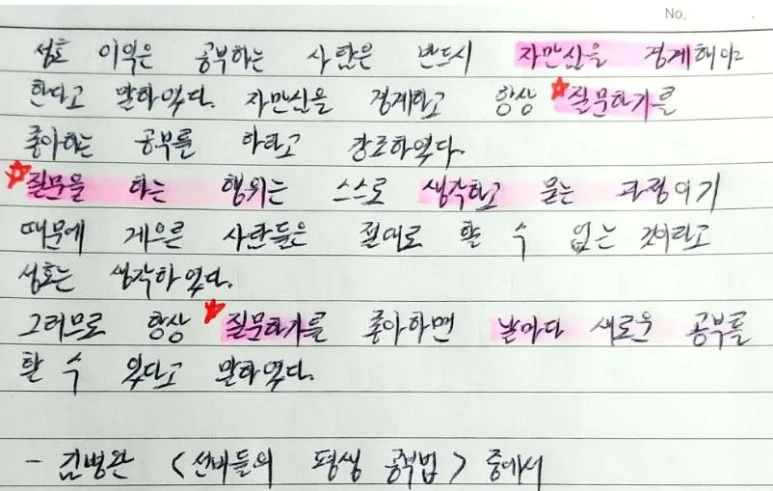 No.
성호 이익은 공부하는 사람은 반드시 자만심을 경계해야
한다고 말하였다. 자만심을 경계하고 항상 질문하기를
좋아하는 공부를 하라고 강조하였다.
질문을 하는 행위는 스스로 생각하고 묻는 과정이기
때문에 게으른 사람들은 절대로 할 수 없는 것이라고
성호는 생각하였다.
그러므로 항상 질문하기를 좋아하면 날마다 새로운 공부를
할 수 있다고 말하였다.
- 김병완 <선비들의 평생 공부법> 중에서